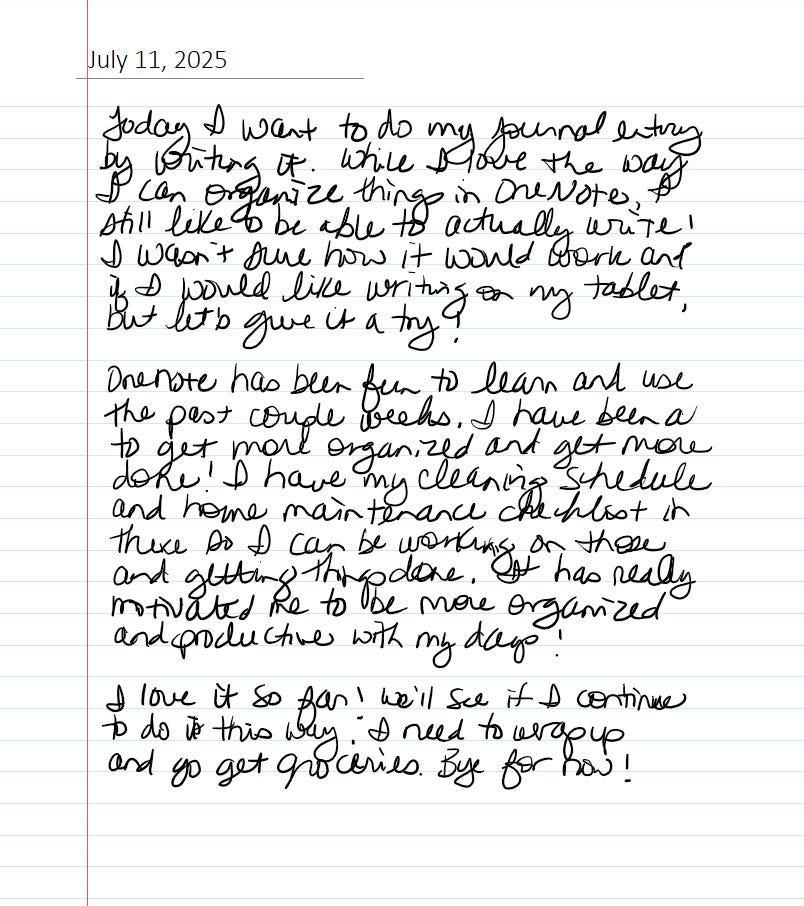 July 11, 2025
Today I want to do my journal entry
by writing it. While I love the way
I can organize things in OneNote, I
still like to be able to actually write!
I wasn't sure how it would work and
if I would like writing on my tablet,
but let's give it a try!
OneNote has been fun to learn and use
the past couple weeks. I have been a
to get more organized and get more
done! I have my cleaning schedule
and home maintenance checklist in
there so I can be working on those
and getting things done. It has really
motivated me to be more organized
and productive with my days!
I love it so far! We'll see if I continue
to do it this way. I need to wrap up
and go get groceries. Bye for now!